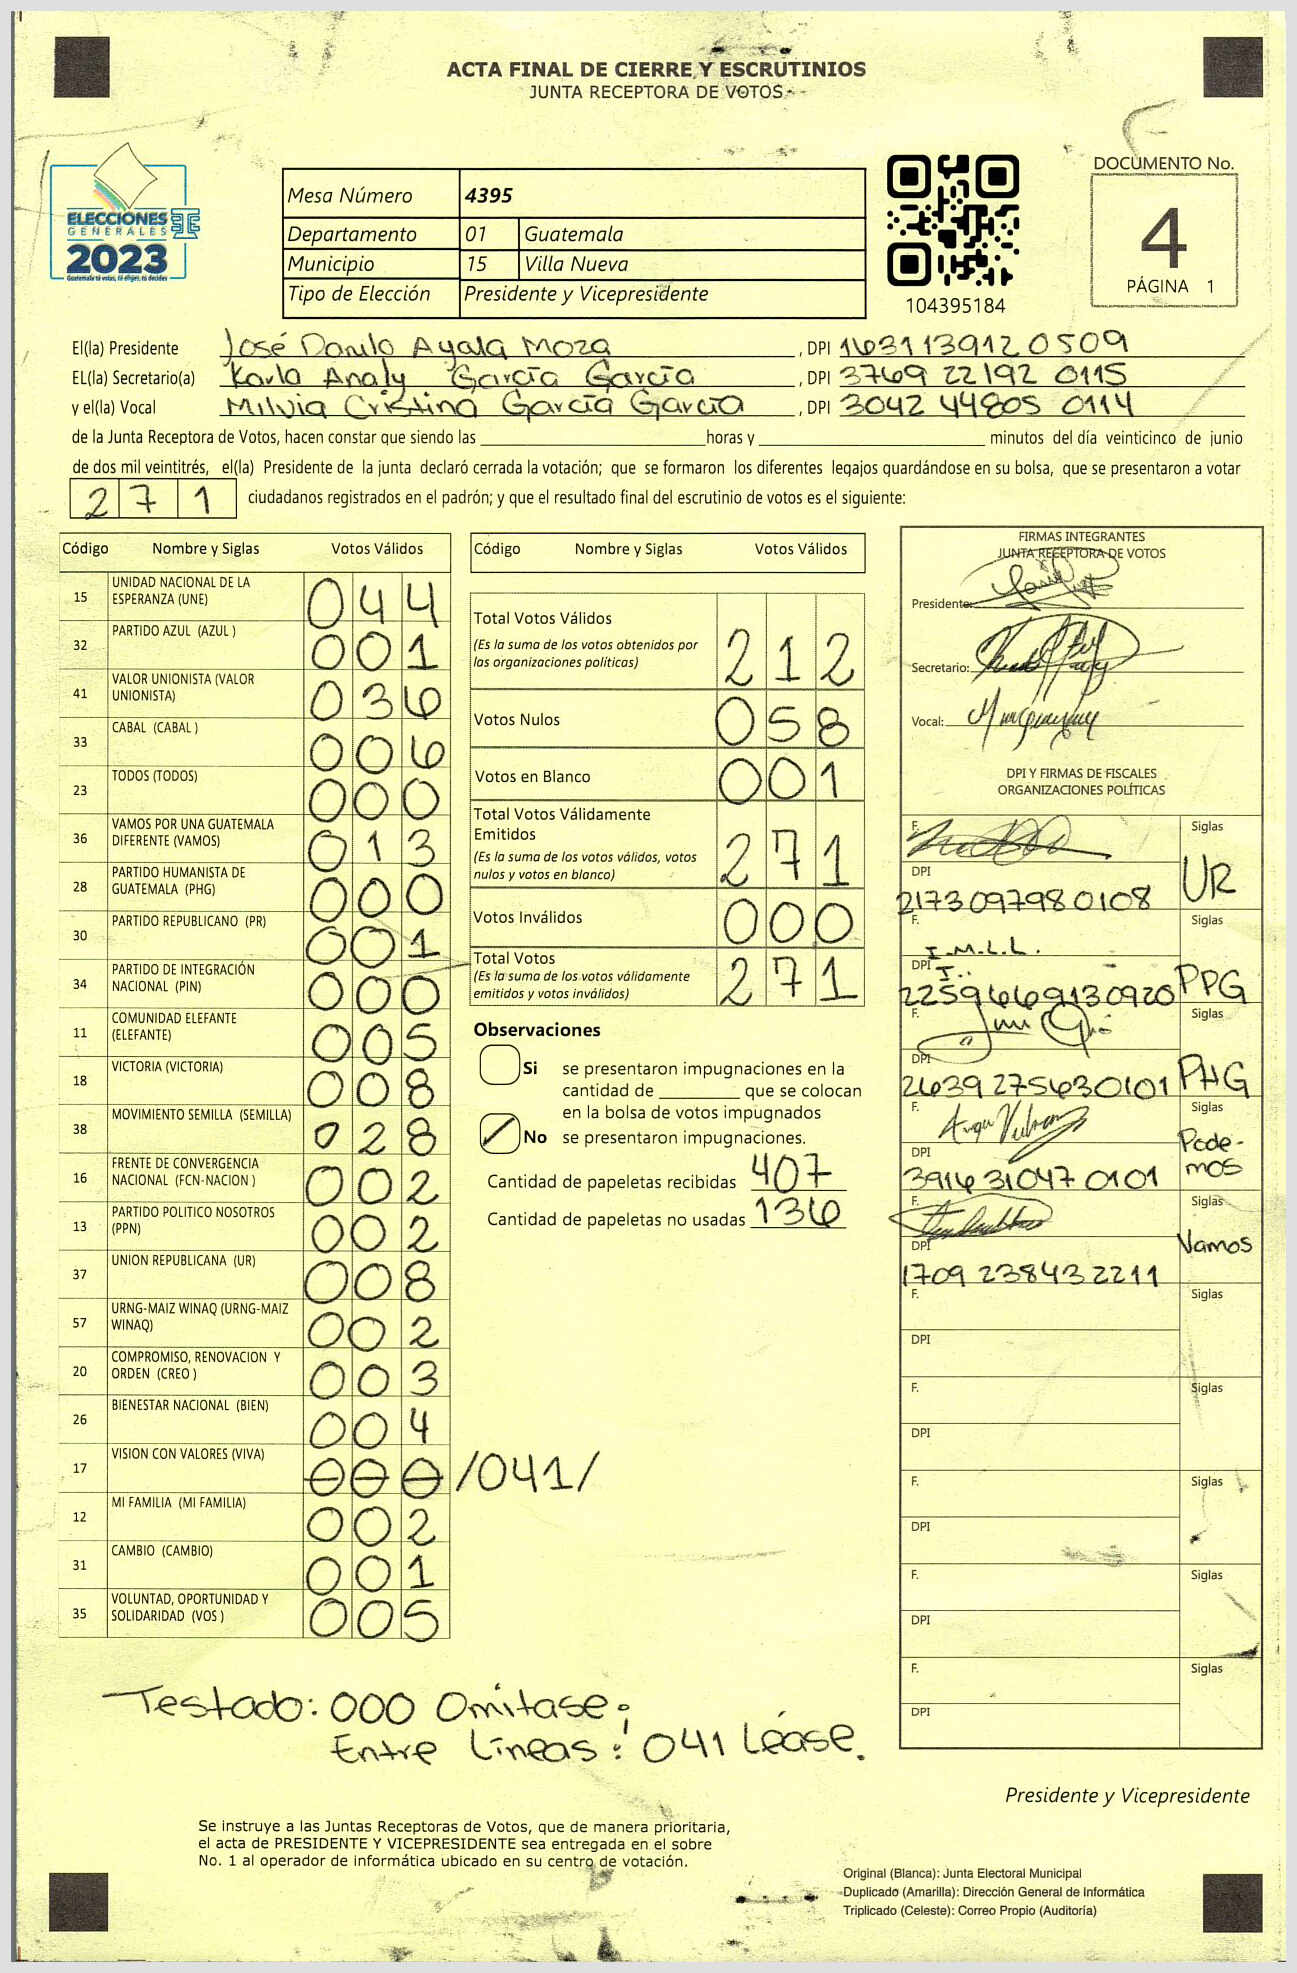 ACTA FINAL DE CIERRE Y ESCRUTINIOS
JUNTA RECEPTORA DE VOTOS
ELECCIONES
GENERALES
2023
Guatemala tú votas, tú eliges, tú decides
Mesa Número 4395
Departamento 01 Guatemala
Municipio 15 Villa Nueva
Tipo de Elección Presidente y Vicepresidente
104395184
DOCUMENTO No.
4
PÁGINA 1
El(la) Presidente José Danilo Ayala Moza, DPI 1631139120509
EL(la) Secretario(a) Karla Analy García García, DPI 3769 22192 0115
y el(la) Vocal Milvia Cristina García García, DPI 3042 44805 0114
de la Junta Receptora de Votos, hacen constar que siendo las ____ horas y ____ minutos del día veinticinco de junio
de dos mil veintitrés, el(la) Presidente de la junta declaró cerrada la votación; que se formaron los diferentes legajos guardándose en su bolsa, que se presentaron a votar
271 ciudadanos registrados en el padrón; y que el resultado final del escrutinio de votos es el siguiente:
Código Nombre y Siglas Votos Válidos
15 UNIDAD NACIONAL DE LA ESPERANZA (UNE) 044
32 PARTIDO AZUL (AZUL ) 001
41 VALOR UNIONISTA (VALOR UNIONISTA) 036
33 CABAL (CABAL ) 006
23 TODOS (TODOS) 000
36 VAMOS POR UNA GUATEMALA DIFERENTE (VAMOS) 013
28 PARTIDO HUMANISTA DE GUATEMALA (PHG) 000
30 PARTIDO REPUBLICANO (PR) 001
34 PARTIDO DE INTEGRACIÓN NACIONAL (PIN) 000
11 COMUNIDAD ELEFANTE (ELEFANTE) 005
18 VICTORIA (VICTORIA) 008
38 MOVIMIENTO SEMILLA (SEMILLA) 028
16 FRENTE DE CONVERGENCIA NACIONAL (FCN-NACION ) 002
13 PARTIDO POLITICO NOSOTROS (PPN) 002
37 UNION REPUBLICANA (UR) 008
57 URNG-MAIZ WINAQ (URNG-MAIZ WINAQ) 002
20 COMPROMISO, RENOVACION Y ORDEN (CREO ) 003
26 BIENESTAR NACIONAL (BIEN) 004
17 VISION CON VALORES (VIVA) 000 /041/
12 MI FAMILIA (MI FAMILIA) 002
31 CAMBIO (CAMBIO) 001
35 VOLUNTAD, OPORTUNIDAD Y SOLIDARIDAD (VOS ) 005
Código Nombre y Siglas Votos Válidos
Total Votos Válidos 212
(Es la suma de los votos obtenidos por
las organizaciones políticas)
Votos Nulos 058
Votos en Blanco 001
Total Votos Válidamente
Emitidos 271
(Es la suma de los votos válidos, votos
nulos y votos en blanco)
Votos Inválidos 000
Total Votos 271
(Es la suma de los votos válidamente
emitidos y votos inválidos)
Observaciones
Si se presentaron impugnaciones en la
cantidad de ____ que se colocan
en la bolsa de votos impugnados
No se presentaron impugnaciones.
Cantidad de papeletas recibidas 407
Cantidad de papeletas no usadas 136
FIRMAS INTEGRANTES
JUNTA RECEPTORA DE VOTOS
Presidente:
Secretario:
Vocal:
DPI Y FIRMAS DE FISCALES
ORGANIZACIONES POLÍTICAS
F. Siglas
DPI UR
2173097980108
F. Siglas
I.M.L.L.
DPI PPG
2259666913 0920
F. Siglas
DPI PHG
2639275630101
F. Siglas
DPI Pode-
mos
3916310470101
F. Siglas
DPI Vamos
1709 238432211
F. Siglas
DPI
F. Siglas
DPI
F. Siglas
DPI
F. Siglas
DPI
F. Siglas
DPI
Testado: 000 Omítase;
Entre Líneas: 041 Léase.
Presidente y Vicepresidente
Se instruye a las Juntas Receptoras de Votos, que de manera prioritaria,
el acta de PRESIDENTE Y VICEPRESIDENTE sea entregada en el sobre
No. 1 al operador de informática ubicado en su centro de votación.
Original (Blanca): Junta Electoral Municipal
Duplicado (Amarilla): Dirección General de Informática
Triplicado (Celeste): Correo Propio (Auditoría)